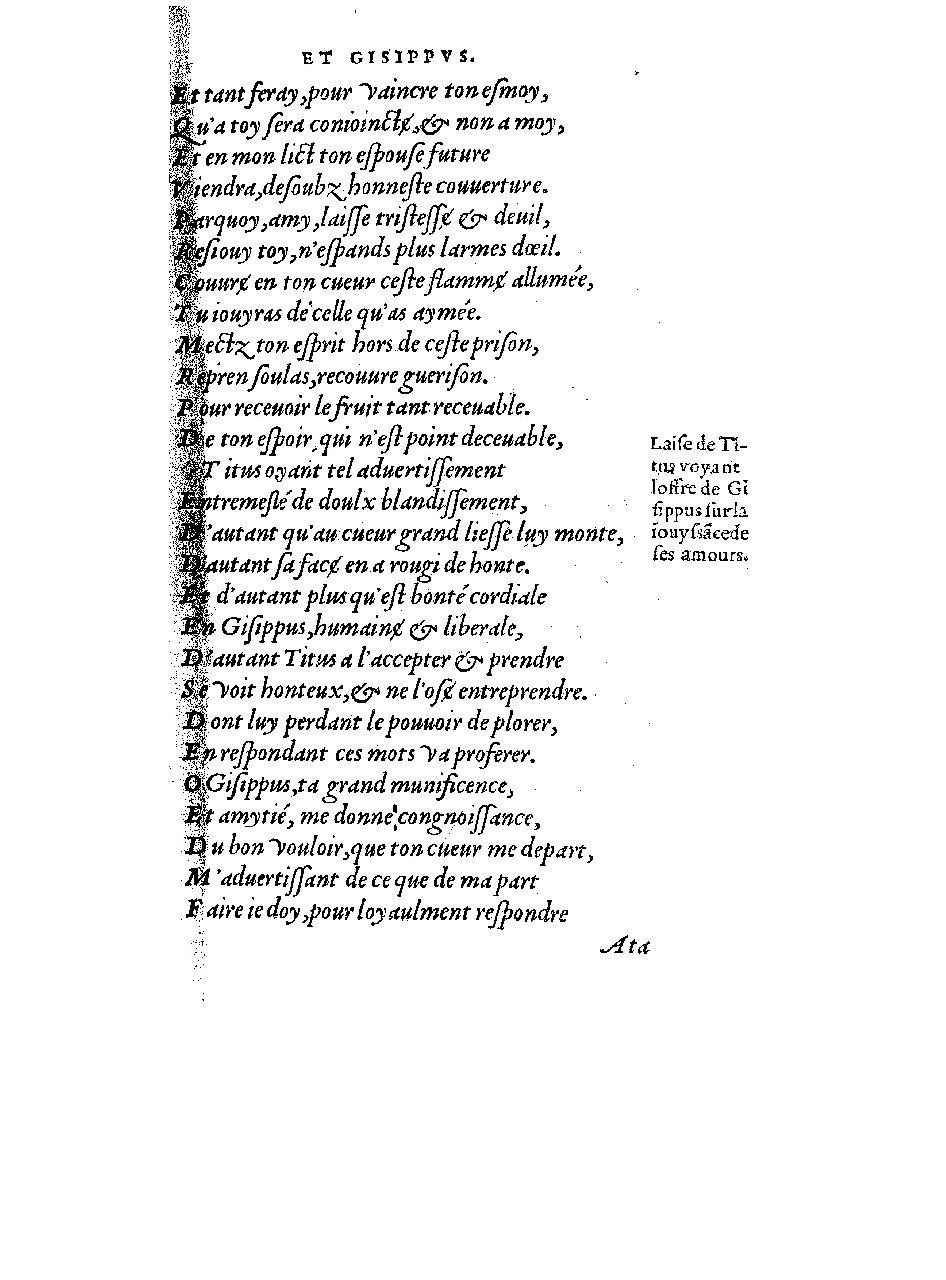 ET GISIPPVS.
Et tant feray, pour vaincre ton eſmoy,
Qu'a toy ſera conioincte, & non a moy,
Et en mon lict ton eſpouſe future
Viendra, deſoubz honneſte couuerture.
Parquoy, amy, laiſſe triſteſſe & deuil,
Reſiouy toy, n'eſpands plus larmes dœil.
Couure en ton cueur ceſte flamme allumée,
Tu iouyras de celle qu'as aymée.
Mectz ton eſprit hors de ceſte priſon,
Repren ſoulas, recouure gueriſon.
Pour receuoir le fruit tant receuable.
De ton eſpoir, qui n'eſt point deceuable,
Titus oyant tel aduertiſſement
Entremeſlé de doulx blandiſſement,
D'autant qu'au cueur grand lieſſe luy monte,
D'autant ſa face en a rougi de honte.
Et d'autant plus qu'eſt bonté cordiale
En Giſippus, humaine & liberale,
D'autant Titus a l'accepter & prendre
Se voit honteux, & ne l'oſe entreprendre.
Dont luy perdant le pouuoir de plorer,
En reſpondant ces mots va proferer.
O Giſippus, ta grand munificence,
Et amytié, me donne congnoiſſance,
Du bon vouloir, que ton cueur me depart,
M'aduertiſſant de ce que de ma part
Faire ie doy, pour loyaulment reſpondre
Ata
Laiſe de Ti-
tus voyant
loffre de Gi
ſippus ſur la
iouyſsãce de
ſes amours.